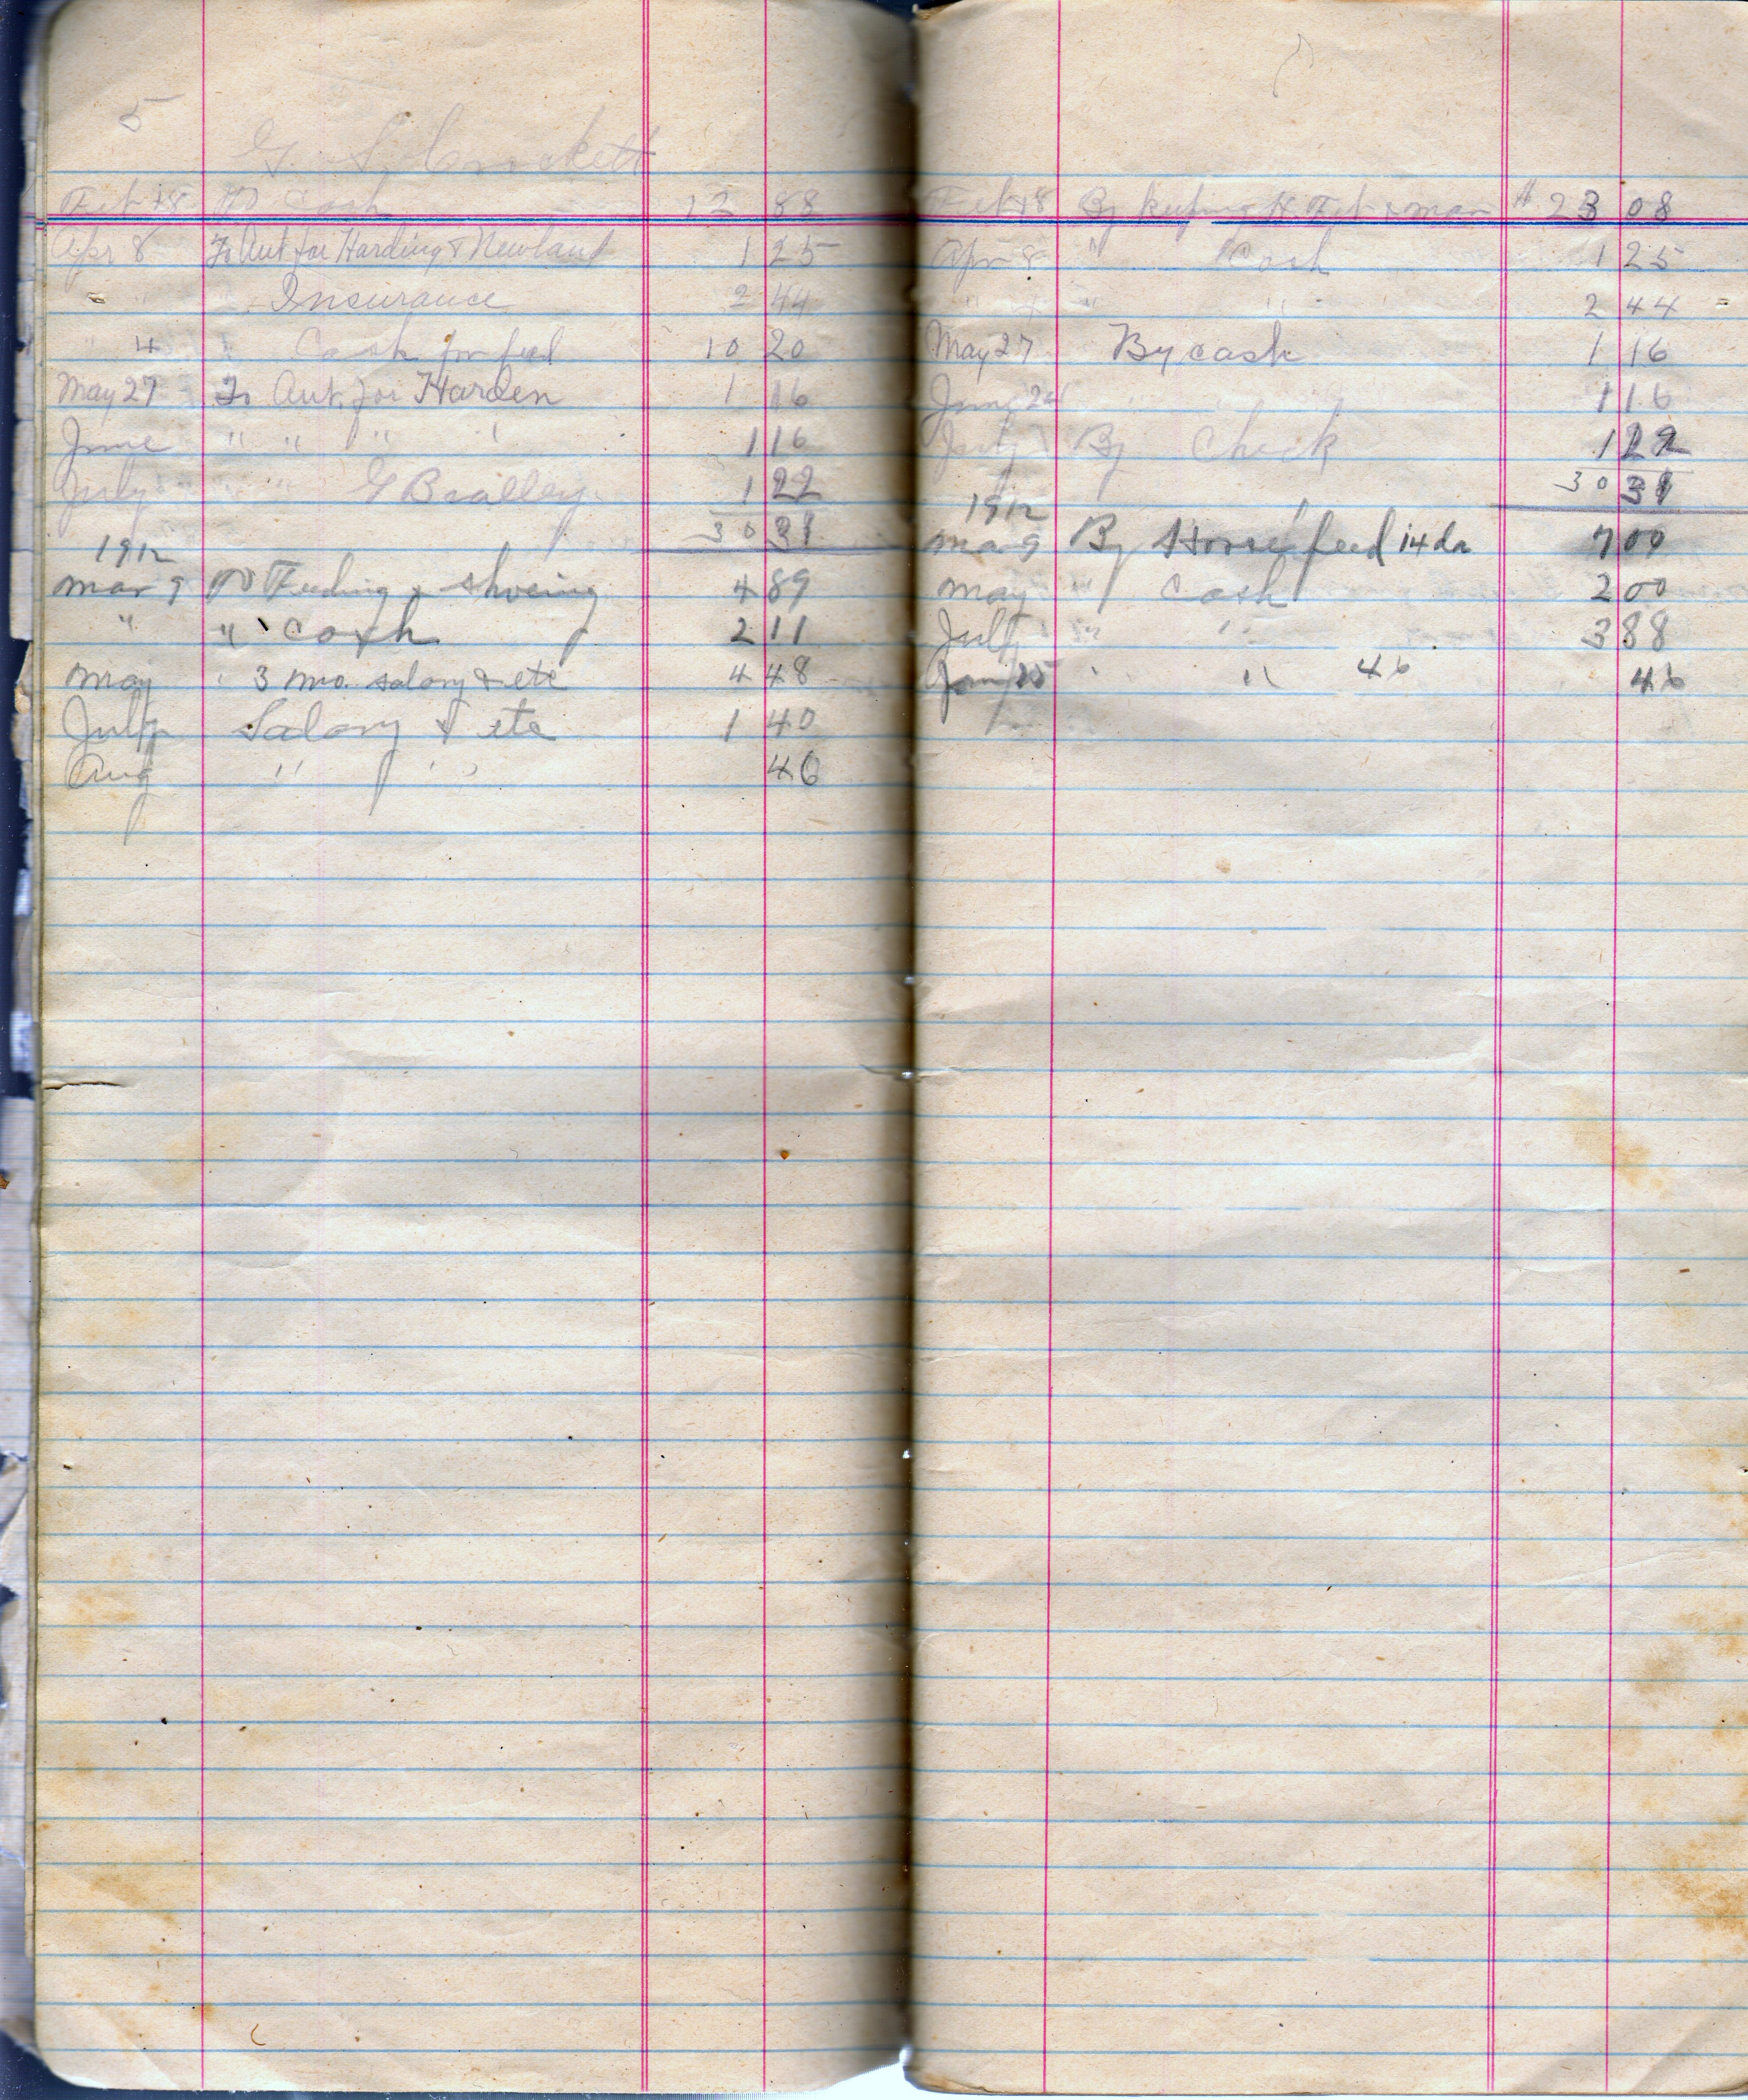 5
G. S. Crockett
Feb 18 To Cash 12 88
Apr 8 To Amt for Harding & Newland 1 25
" " " Insurance 2 44
" 4 " Cash for feed 10 20
May 27 To Amt. for Harden 1 16
June " " " " 1 16
July " G Bralley 1 22
30 31
1912
Mar 9 To Feeding & shoeing 4 89
" " Cash 2 11
May " 3 mo. salary & etc 4 48
July Salary & etc 1 40
Aug " " " 46
Feb 18 By keeping H. Feb & Mar $ 23 08
Apr 8 " Cash 1 25
" " " " 2 44
May 27 By cash 1 16
June 24 " " 1 16
July By Check 1 22
30 31
1912
Mar 9 By Horse feed 14 da 7 00
May " Cash 2 00
July " " 3 88
Jan 25 " " 46 46